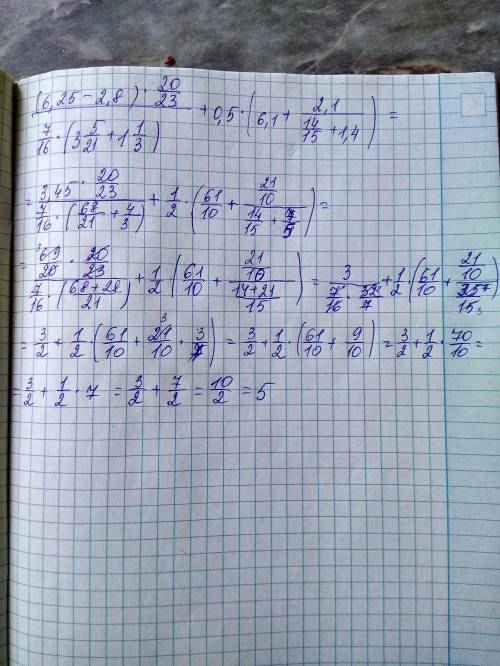 ((6,25 - 2,8) · 20/23) / (7/16 · (3 5/21 + 1 1/3)) + 0,5 · (6,1 + 2,1 / (14/15 + 1,4)) =
= (3,45 · 20/23) / (7/16 · (68/21 + 4/3)) + 1/2 · (61/10 + (21/10) / (14/15 + 7/5)) =
= (69/20 · 20/23) / (7/16 · ((68+28)/21)) + 1/2 · (61/10 + (21/10) / ((14+21)/15)) = 3 / (7/16 · 32/7) + 1/2 · (61/10 + (21/10) / (35/15)) =
= 3/2 + 1/2 · (61/10 + 21/10 · 3/7) = 3/2 + 1/2 · (61/10 + 9/10) = 3/2 + 1/2 · 70/10 =
= 3/2 + 1/2 · 7 = 3/2 + 7/2 = 10/2 = 5